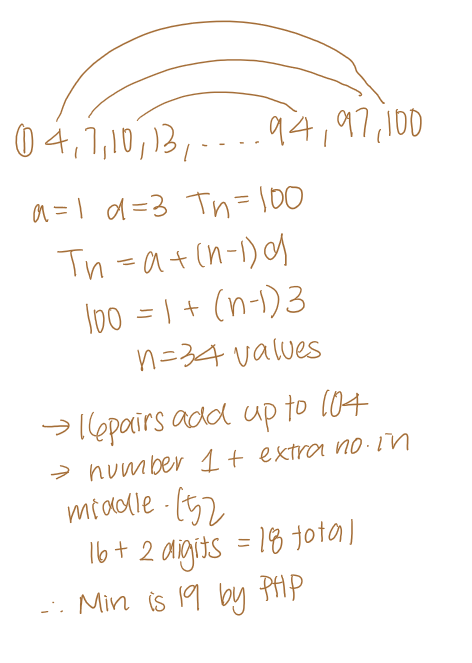 ① 4,7,10,13,....94,97,100
a=1 d=3 Tn=100
Tn = a+(n-1)d
100 = 1 + (n-1)3
n=34 values
→ 16pairs add up to 104
→ number 1 + extra no. in
middle. (52
16+ 2 digits = 18 total
∴ Min is 19 by PHP